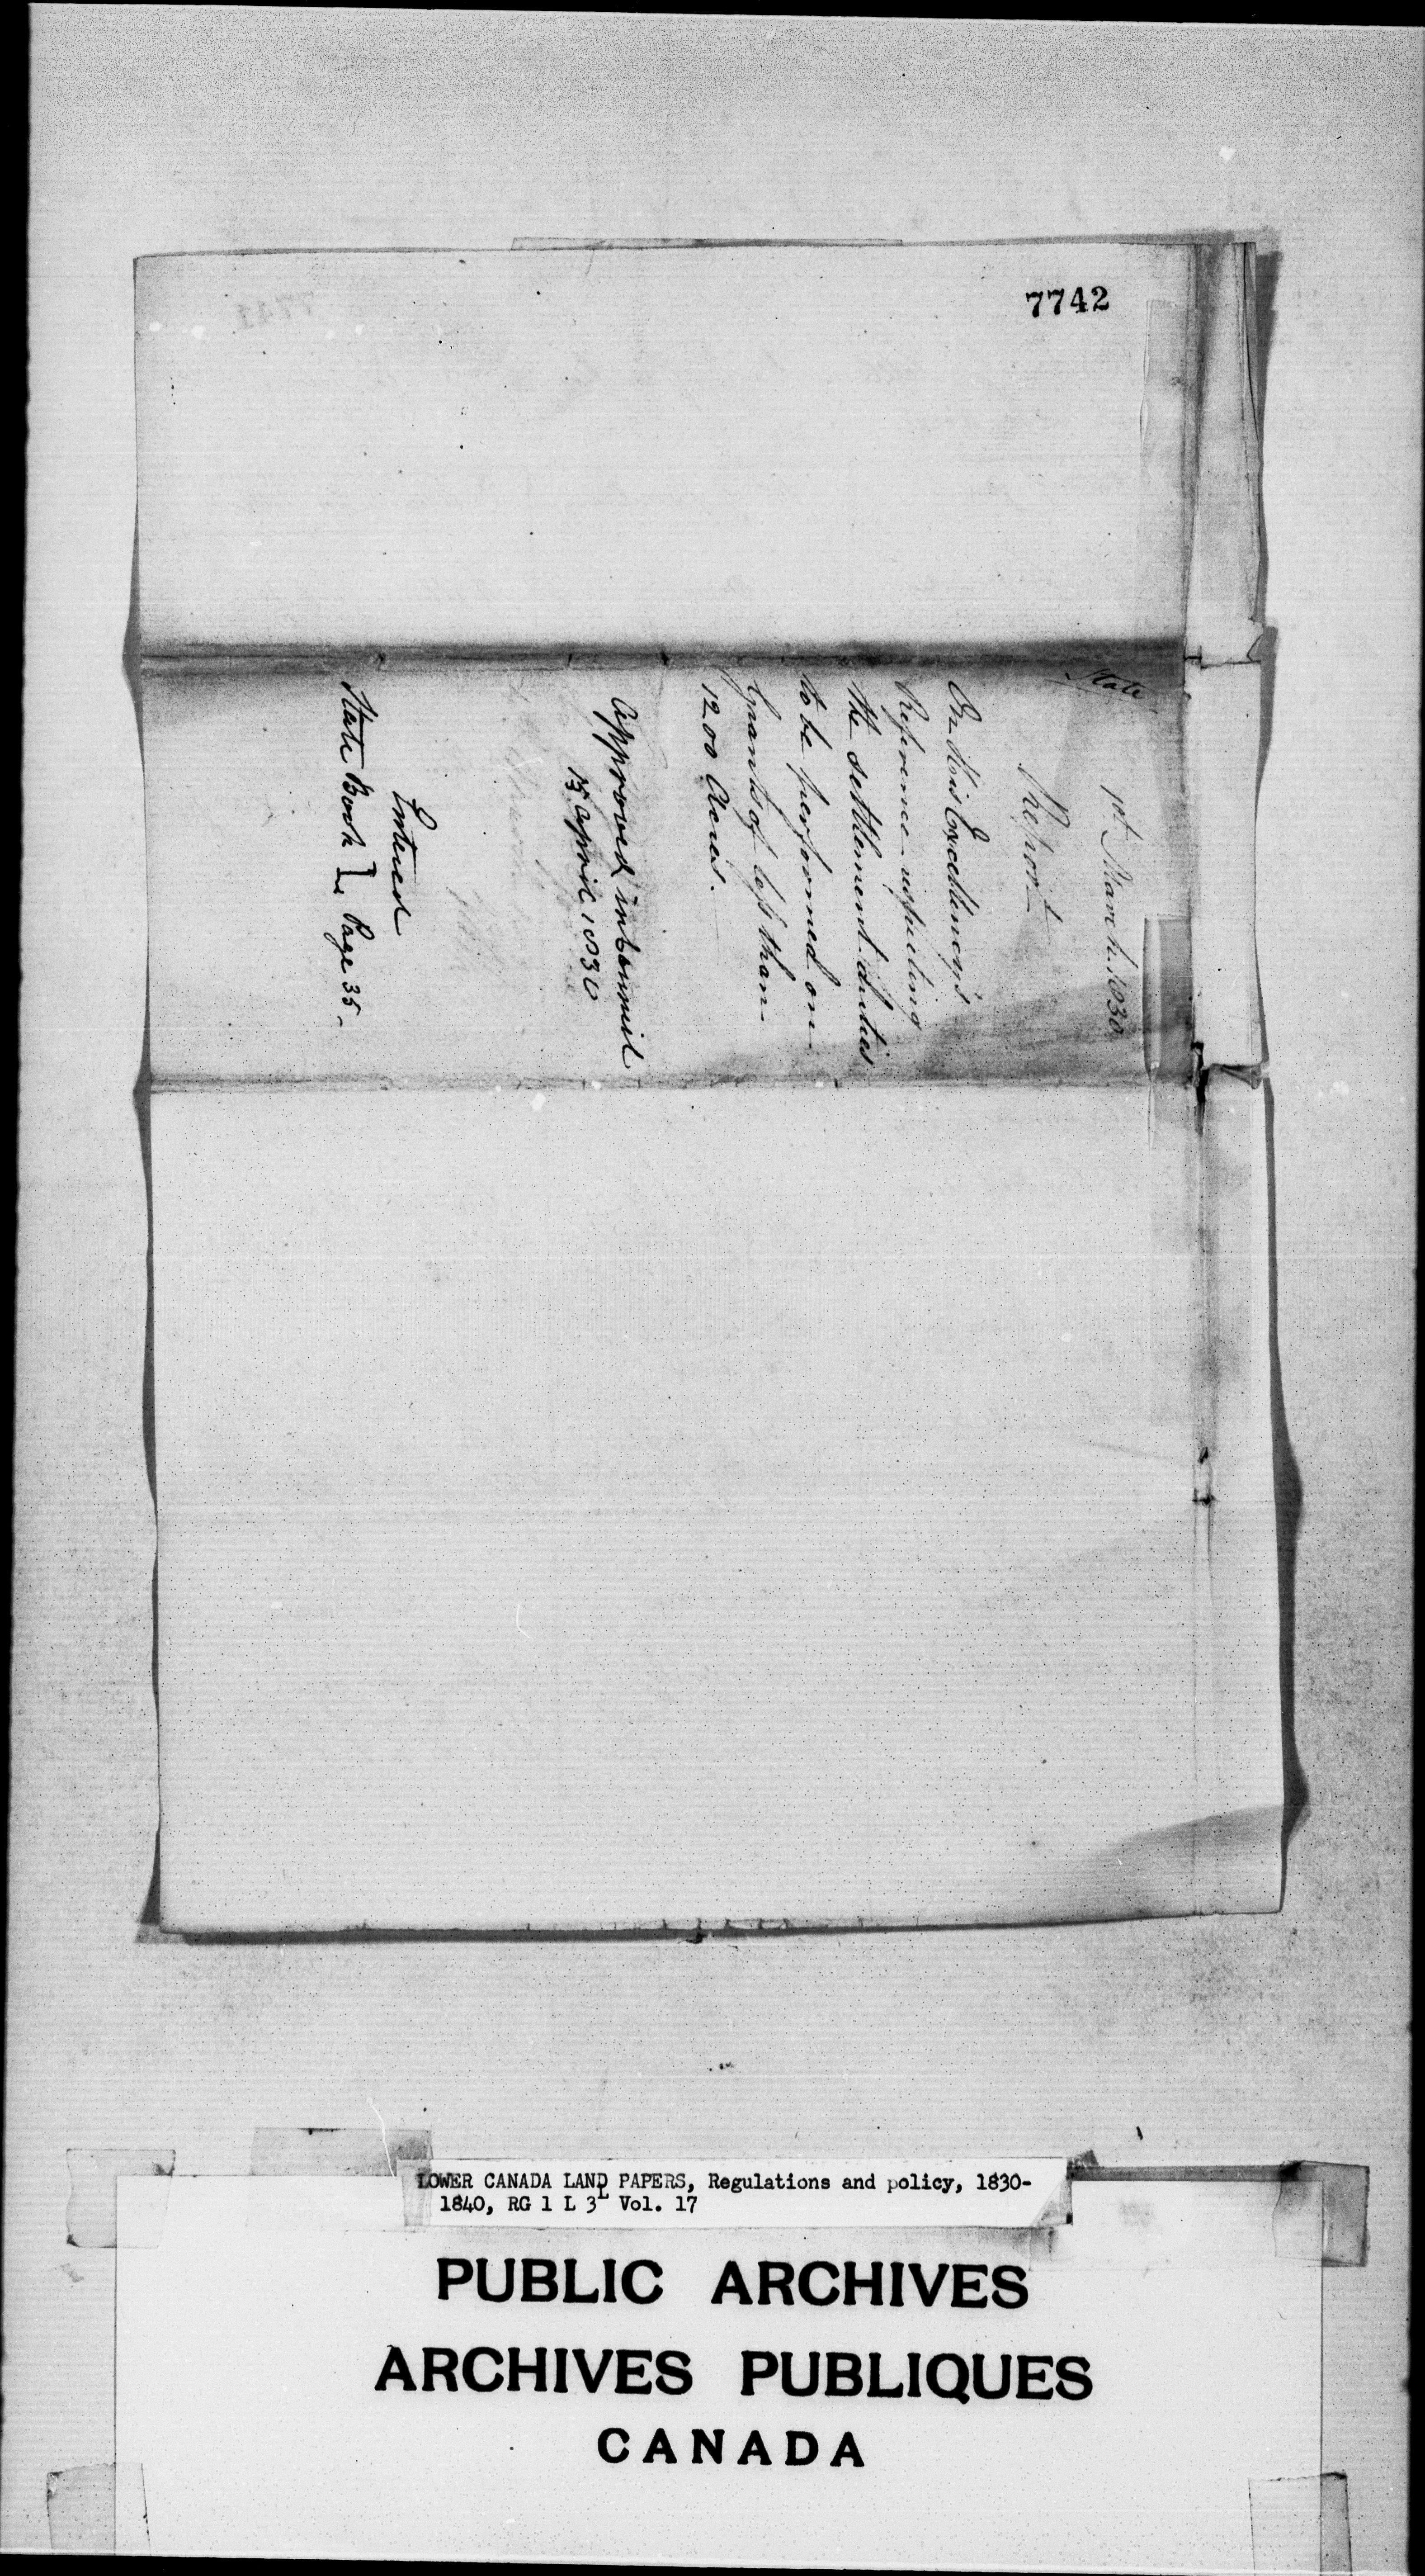 7742
State
1st March 1830
Report
On His Excellency's
Reference respecting
the settlement duties
to be performed on
Grants of less than
1200 Acres.
Approved in Council
15 April 1830
Entered
State Book Page 35
LOWER CANADA LAND PAPERS, Regulations and policy, 1830-
1840, RG 1 L 3L Vol. 17
PUBLIC ARCHIVES
ARCHIVES PUBLIQUES
CANADA